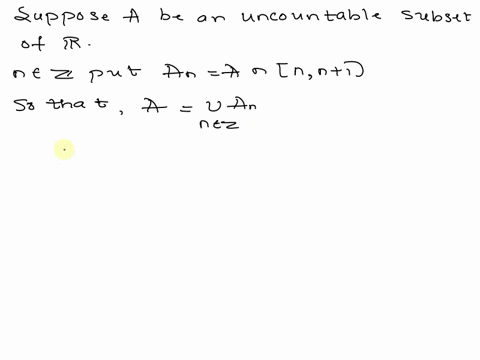 Suppose A be an uncountable subset
of ℝ.
n∈ℤ put An = A ∩ [n, n+1)
So that, A = ∪ An
n∈ℤ